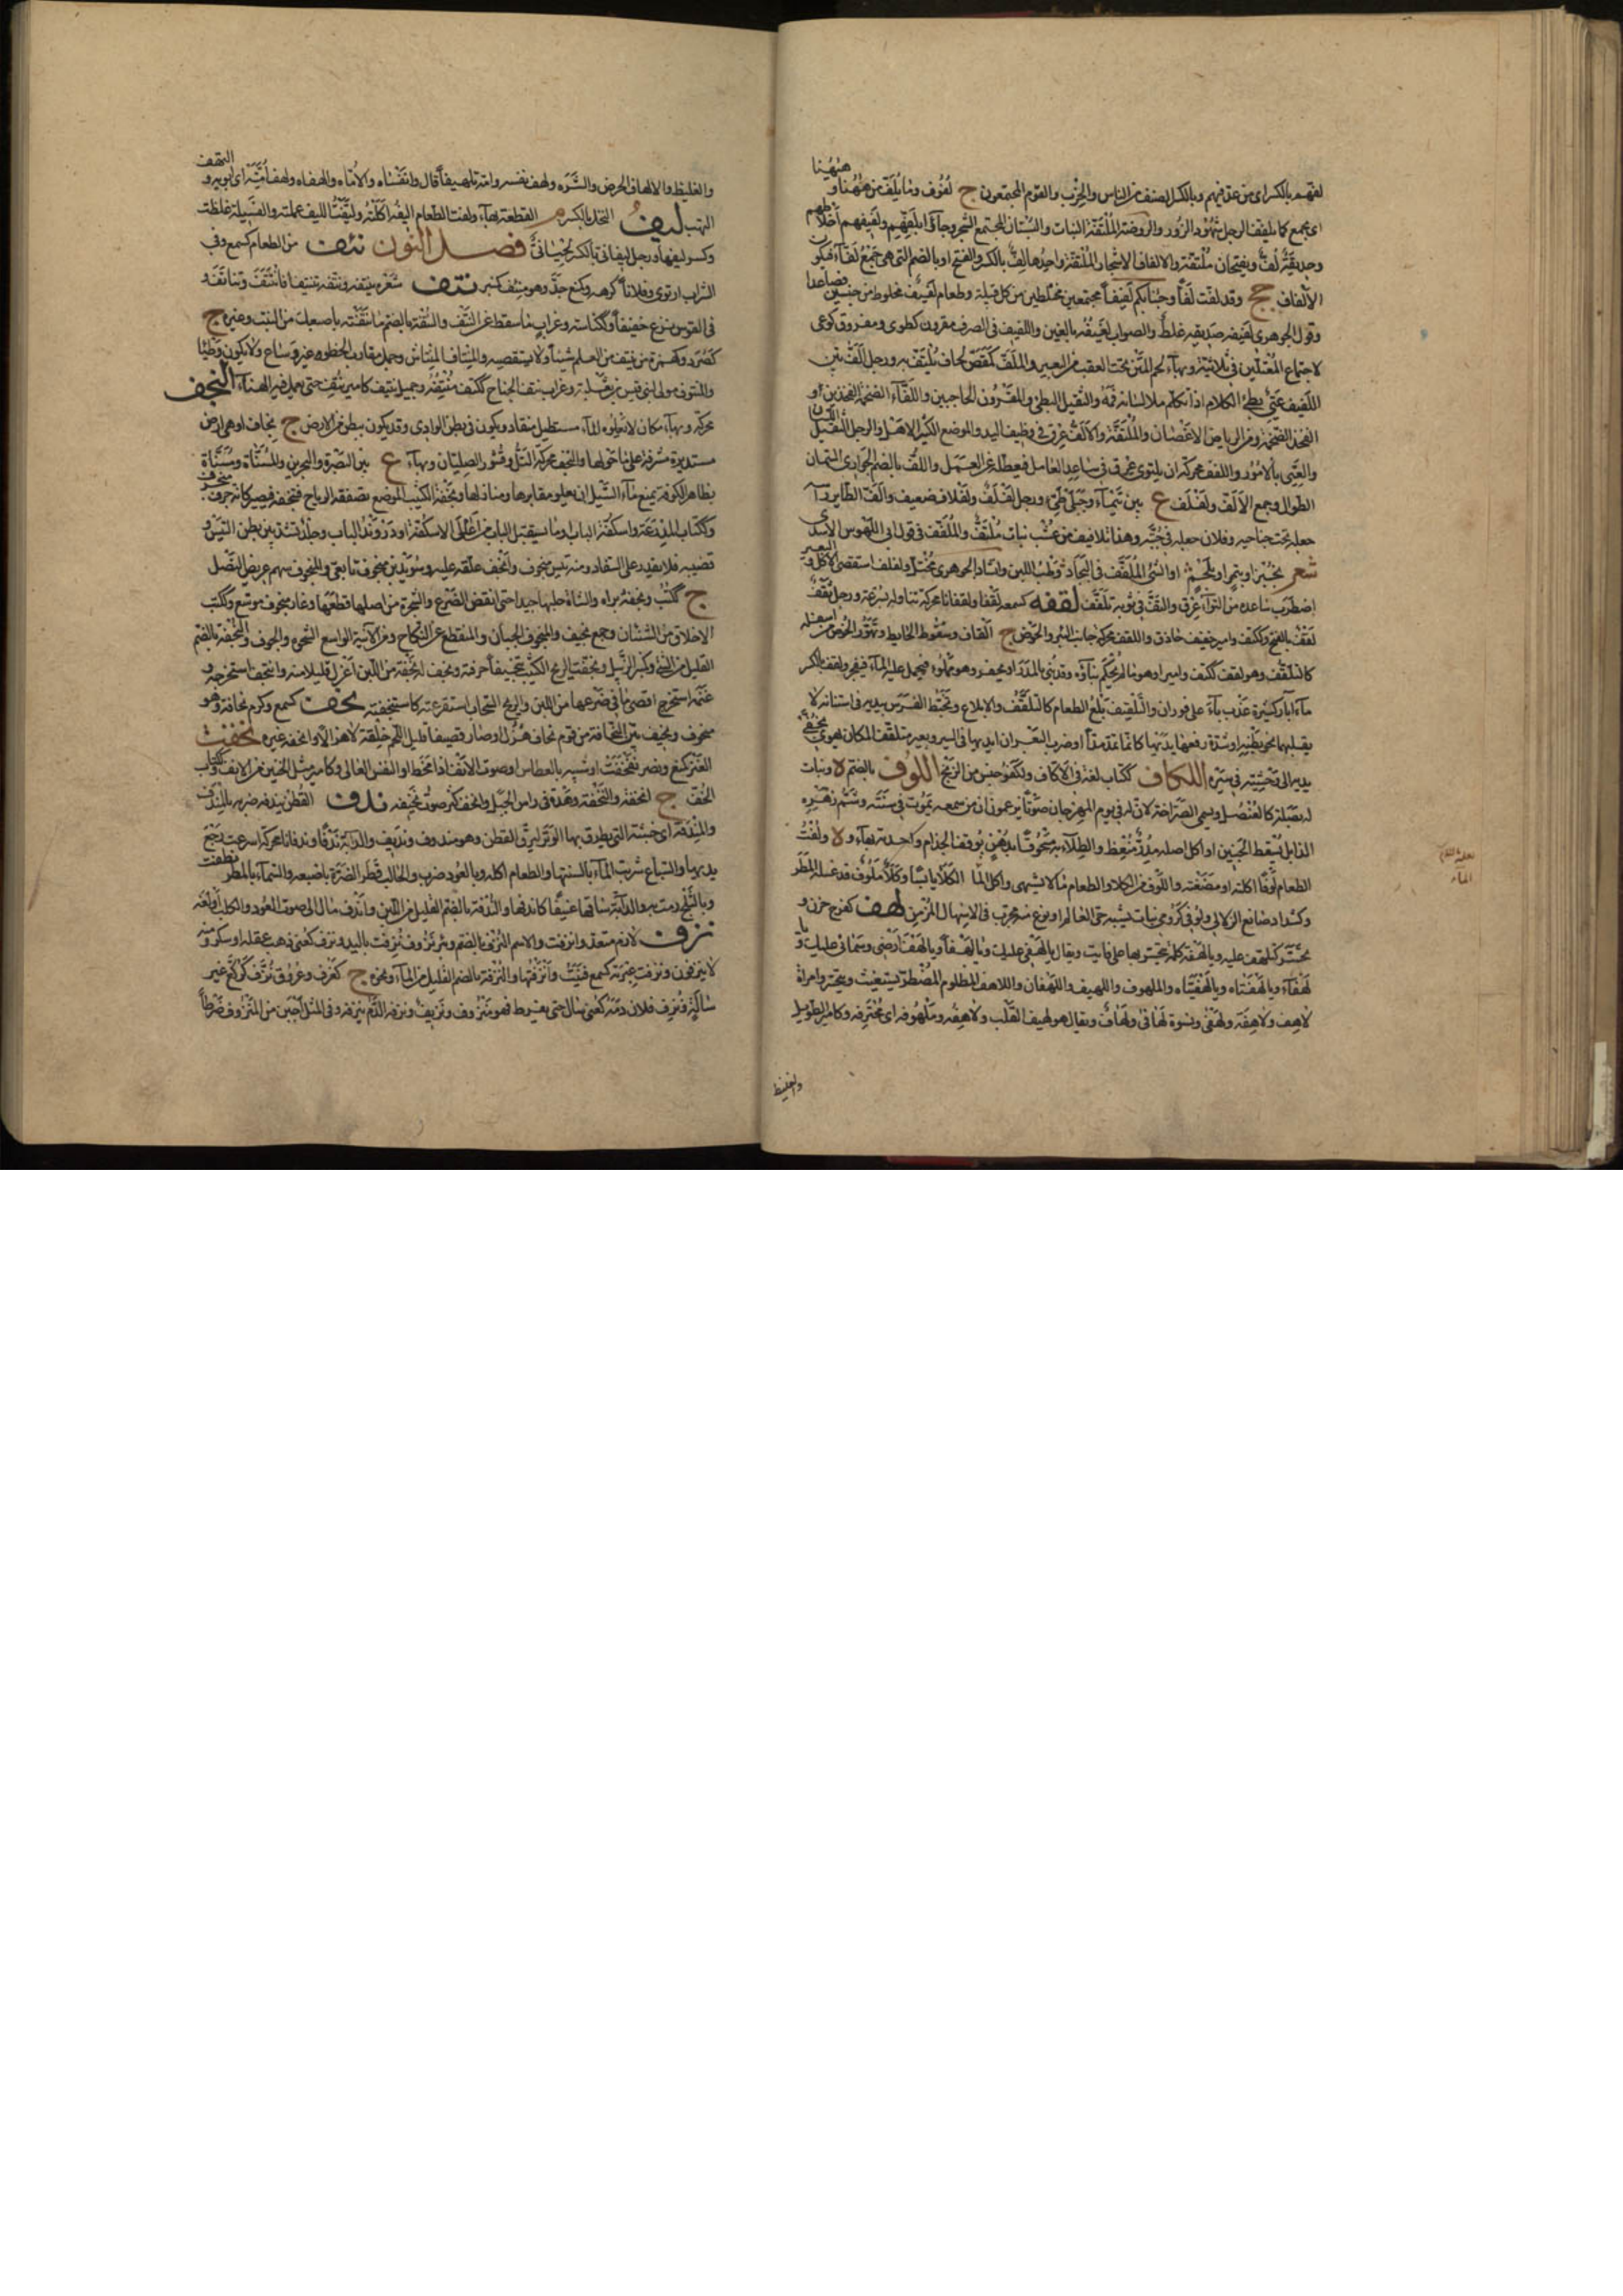 لفهم بالكسر اى من عدّ فيهم وبالكسر الصنف من الناس والحزب والقوم المجتمعون ج لفوف وما يلفّ من ههنا وههنا
اى يجمع كما يلفف الرجل شهود الزور والروضة الملتفة النبات والبستان المجتمع الشجر وجاؤا بلفهم ولفيفهم اخلاطهم
وحديقة لفّ ويفتحان ملتفة والالفاف الاشجار الملتفة واحدها لفّ بالكسر والفتح او بالضم التى هى جمع لفّاء فيكون
الالفاف جج وقد لفّت لفّا وجئنا بكم لفيفا مجتمعين مختلطين من كل قبيلة وطعام لفيف مخلوط من جنسين فصاعدا
وقول الجوهرى لفيفه صديقه غلط والصواب لغيفه بالغين واللفيف فى الصرف مقرون كطوى ومفروق كوعى
لاجتماع المعتلّين فى ثلاثيه وبهاء لحم المتن تحت العقب من البعير والملفّ كمقصّ لحاف يلتفّ به ورجل الفّ بيّن
اللفيف عيىّ بطئ الكلام اذا تكلم ملا لسانه فمه والثقيل البطئ والمقرون الحاجبين واللفّاء الضخمة الفخذين او
الفخذ الضخمة ومن الرياض الاغصان والملتفة والالفّ عرق فى وظيف اليد والموضع الكثير الاهل والرجل الثقيل اللسان
والعيىّ بالامور واللفف محركة ان يلتوى عرق فى ساعد العامل فيعطله عن العمل واللفّ بالضم الجوارى السمان
الطوال وجمع الالفّ ولفلف ع بين تيماء وجبلى طيئ ورجل لفلف ولفلاف ضعيف والفّ الطاير راسه
جعله تحت جناحيه وفلان جعله فى جبته وهنا تلافيف من عشب نبات ملتفّ والملفّف فى قول ابى المهوس الاسدى
شعر بخبز او بتمر او بلحم او الشئ الملفّف فى البجاد وطب اللبن وانشاد الجوهرى مختلّ ولفلف استقصى الاكل والبعير
اضطرب ساعده من التواء عرق والتفّ فى ثوبه تلفّف لقفه كسمعه لقفا ولقفانا محركة تناوله بسرعة ورجل ثقف
لقف بالفتح وككتف وامير خفيف حاذق واللقف محركة جانب البئر والحوض ج القاف وسقوط الحايط وتهوّر الحوض من اسفله
كالتلقّف وهو لقف ككتف وامير او هو ما لم يحكم بناؤه وقد بنى بالمدر او يحفر وهو مملوء فيحمل عليه الماء فيفجره ولقف بالكسر
ماء آبار كثيرة عذب باعلى قوران والتلقيف بلع الطعام كالتلقّف والابلاع وتخبّط الفرس بيديه فى استنانه لا
يقلهما نحو بطنه او شدة رفعها يديها كانما تمدّ مدّا او ضرب البعران ايديها فى السير وبعير متلقّف اذا كان يهوى بخفّى
يديه الى وحشيه فى سيره اللكاف ككتاب لغة فى الاكاف ولكفو جنس من الزنج اللوف بالضم لا ونبات
له بصلة كالعنصل ويسمى الصرّاخة لان له فى يوم المهرجان صوتا يزعمون ان من سمعه يموت فى سنته وشمّ زهره
الذابل يسقط الجنين او اكل اصله مدرّ منعظ والطلاء به مسحوقا بدهن يوقف الجذام واحدته بهاء ولا ولفت
الطعام لوفا اكلته او مضغته واللوف من الكلا والطعام ما لا يشتهى واكل المال الكلا يابسا وكلا ملوف قد غسله المطر
وكشداد صانع الزلالى ولوفى كرومى نبات يشبه حىّ العالم او نوع منه مجرّب فى الاسهال المزمن لهف كفرح حزن و
تحسّر كتلهّف عليه ويا لهفه كلمة يتحسّر بها على فائت ويقال يا لهفى عليك ويا لهف ويا لهفا ويا لهف ارضى وسمائى عليك ويا
لهفاه ويا لهفتاه ويا لهفتياه والملهوف واللهيف واللهفان واللاهف المظلوم المضطرّ يستغيث ويتحسّر وامراة
لاهف ولاهفة ولهفى ونسوة لهافى ولهاف ويقال هو لهيف القلب ولاهفه وملهوفه اى محترقه وكامير الطويل
والغليظ
والغليظ والالهاف الحرص والشره ولهف نفسه وامّه تلهيفا قال وانفساه والامّاه والهفاه ولهف امّيه اى ابويه والتهف
التهب ليف النخل بالكسر م القطعة بهاء ولفت الطعام اليفه اكلته وليّفت الليف عملته والفسيلة غلظت
وكسر ليفها ورجل ليفانىّ بالكسر لحيانىّ فصل النون نئف من الطعام كسمع وفى
الشراب ارتوى وفلانا كرهه وكنع جدّ وهو منئف كمنبر نتف شعره ينتفه ونتّفه تنتيفا فانتتف وتناتف و
فى القوس نزع خفيفا وككناسة وغراب ما سقط عن النتف والنتفة بالضم ما نتفته باصبعك من النبت وغيره ج
كصرد وكهمزة من ينتف من العلم شيئا ولا يستقصيه والمنتاف المنتاش وجمل مقارب الخطو غير وساع ولا يكون وطيئا
والمنتوف مولى لبنى قيس بن ثعلبة وغراب نتف الجناح ككتف منتّفه وجمل نتيف كامير نتف حتى يعمل فيه الهناء النجف
محركة وبهاء مكان لا يعلوه الماء مستطيل منقاد ويكون فى بطن الوادى وقد يكون ببطن من الارض ج نجاف او هى ارض
مستديرة مشرفة على ما حولها والنجف محركة التلّ وقشور الصليان وبهاء ع بين البصرة والبحرين والمسنّاة ومسنّاة
بظاهر الكوفة يمنع ماء السيل ان يعلو مقابرها ومنازلها ونجفة الكثيب الموضع تصفقه الرياح فتنجفه فيصير كانه جرف منجرف
وككتاب المدرعة واسكفّة الباب او ما يستقبل الباب من اعلى الاسكفّة او دروند الباب وجلد تشدّ بين بطن التيس و
قضيبه فلا يقدر على السفاد ومنه تيس منجوف وانجف علّقه عليه وسويد بن منجوف تابعى والمنجوف سهم عريض النصل
ج ككتب ونجفه براه والشاة حلبها جيدا حتى انقض الضرع والشجرة من اصلها قطعها وغار منجوف موسّع وككتب
الاخلاق من الشنان وجمع نجيف والمنجوف الجبان والمنقطع عن النكاح ومن الآنية الواسع الشحوة والجوف والنجفة بالضم
القليل من الشئ وكمنبر الزبيل ونجّفت الريح الكثيب تنجيفا جرفته ونجّف له نجفة من اللبن اعزل له قليلا منه وانتجف استخرجه و
غنمه استخرج اقصى ما فى ضرعها من اللبن والريح السحاب استفرغته كاستنجفته نحف كسمع وكرم نحافة وهو
منحوف ونحيف بيّن النحافة من قوم نحاف هزل او صار قضيفا قليل اللحم خلقة لا هزالا وانحفه غيره نخفت
العنز كمنع ونصر نفخت او شبيه بالعطاس او صوت الانف اذا مخط او النفس العالى وكامير مثل الخنين من الانف وككتاب
الخفّ ج انخفة والنخفة وهدة فى راس الجبل وانخف كثر صوت نخيفه ندف القطن يندفه ضربه بالمندف
والمندفة اى خشبته التى يطرق بها الوتر ليرقّ القطن وهو مندوف ونديف والدابة ندفا وندفانا محركة اسرعت رجع
يديها والسباع شربت الماء بالسنتها والطعام اكله وبالعود ضرب والحالب فطر الضرّة باصبعه والسماء بالمطر نطفت
وبالثلج رمت به والدابة ساقها عنيفا كاندفها والندفة بالضم القليل من اللبن واندف مال الى صوت العود والكلب اولغه
نزف لازم متعد وانزفت والاسم النزف بالضم وبئر نزوف نزفت باليد ونزف كعنى ذهب عقله او سكر ومنه
لا ينزفون ونزفت عبرته كسمع فنيت وانزفها والنزفة بالضم القليل من الماء ونحوه ج كغرف وعروق نزّف كركّع غير
سائلة ونزف فلان دمه كعنى سال حتى يفرط فهو منزوف ونزيف ونزفه الدم ينزفه وفى المثل اجبن من المنزوف ضرطا